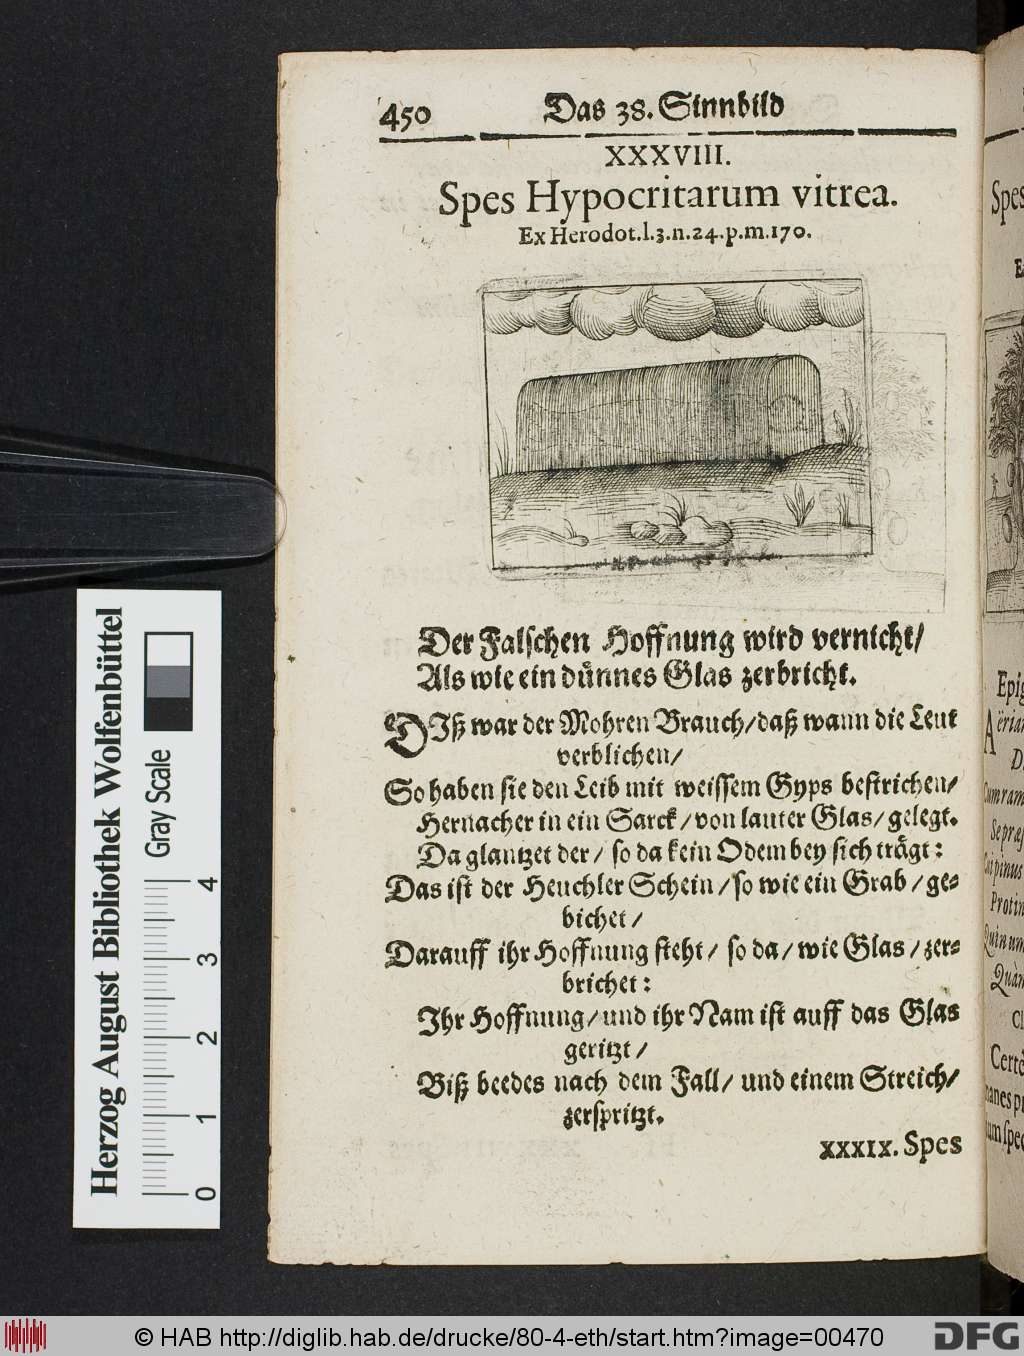 450 Das 38. Sinnbild
XXXVIII.
Spes Hypocritarum vitrea.
Ex Herodot.l.3.n.24.p.m.170.
Der Falschen Hoffnung wird vernicht/
Als wie ein dünnes Glas zerbricht.
DIß war der Mohren Brauch/daß wann die Leut
verblichen/
So haben sie den Leib mit weissem Gyps bestrichen/
Hernacher in ein Sarck/von lauter Glas/gelegt.
Da glantzet der/ so da kein Odem bey sich trägt:
Das ist der Heuchler Schein/so wie ein Grab/ge-
bichet/
Darauff ihr Hoffnung steht/ so da/wie Glas/zer-
brichet:
Ihr Hoffnung/und ihr Nam ist auff das Glas
geritzt/
Biß beedes nach dem Fall/ und einem Streich/
zerspritzt.
XXXIX. Spes
Spes
Epig
Aëria
Cum ram
Sepræ
Protin
Quin un
Quàn
Certè
Herzog August Bibliothek Wolfenbüttel
Gray Scale
0 1 2 3 4
© HAB http://diglib.hab.de/drucke/80-4-eth/start.htm?image=00470
DFG